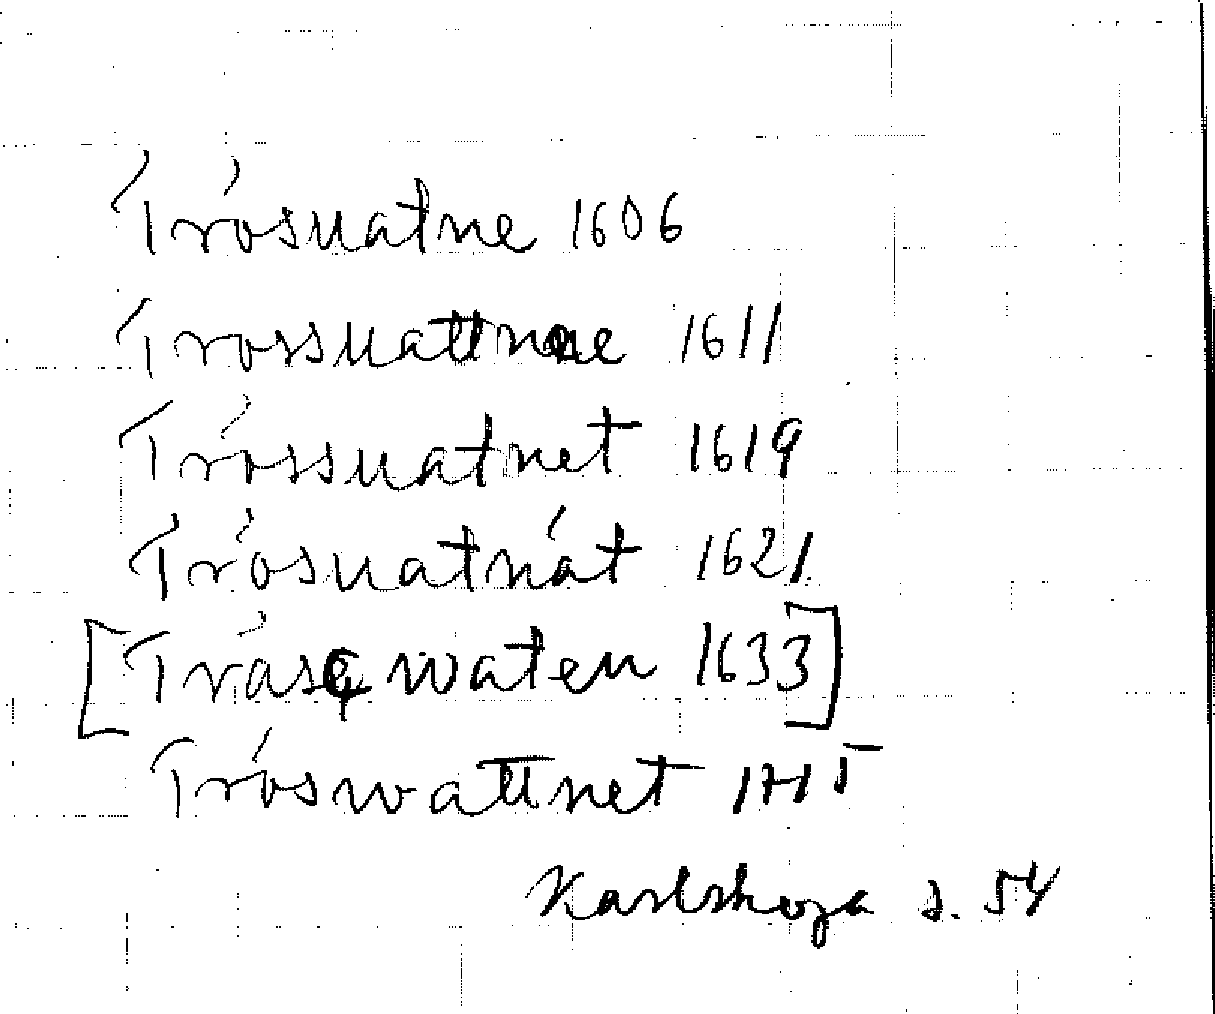 Trósuatne 1606
Trossuattnne 1611
Tróssuatnet 1619
Trósuatnát 1621
[Tråse waten 1633]
Tróswattnet 1715
Karlskoga s. 54